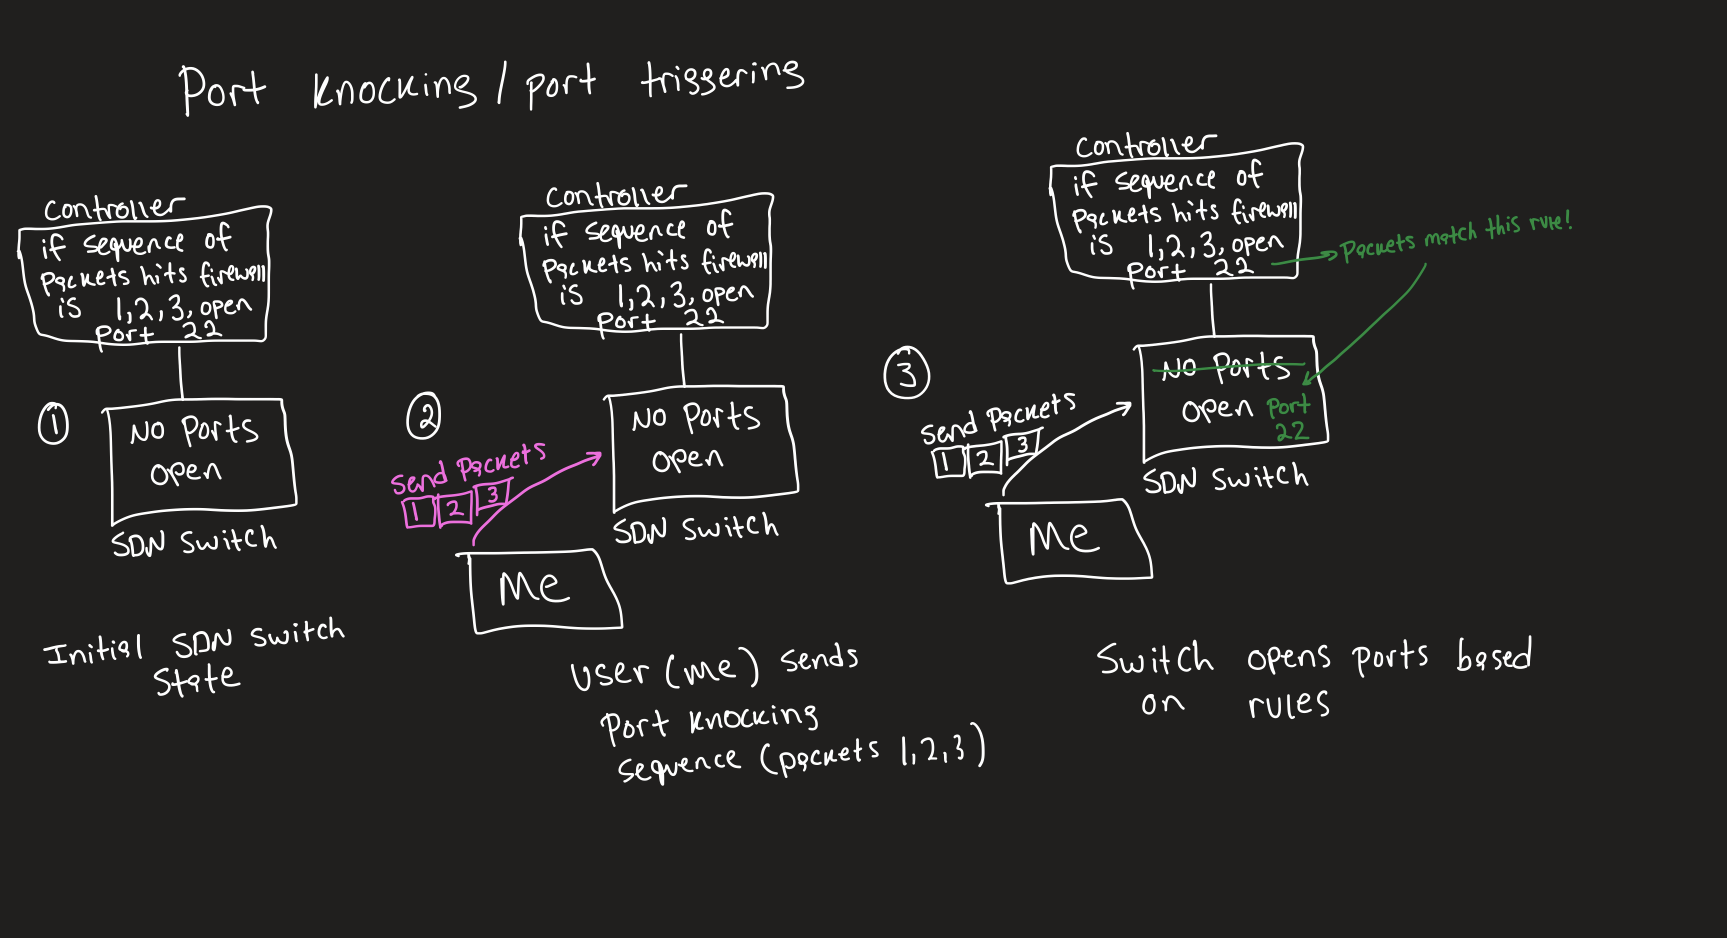 Port Knocking / port triggering
Controller
if sequence of
Packets hits firewall
is 1,2,3, open
Port 22
1
No Ports
open
SDN Switch
Initial SDN Switch
State
Controller
if sequence of
Packets hits firewall
is 1,2,3, open
Port 22
2
No Ports
open
Send Packets
1 2 3
SDN Switch
Me
User (me) sends
Port knocking
sequence (packets 1,2,3)
Controller
if sequence of
Packets hits firewall
is 1,2,3, open
Port 22
Packets match this rule!
3
No Ports
open Port
22
Send Packets
1 2 3
SDN Switch
Me
Switch opens ports based
on rules